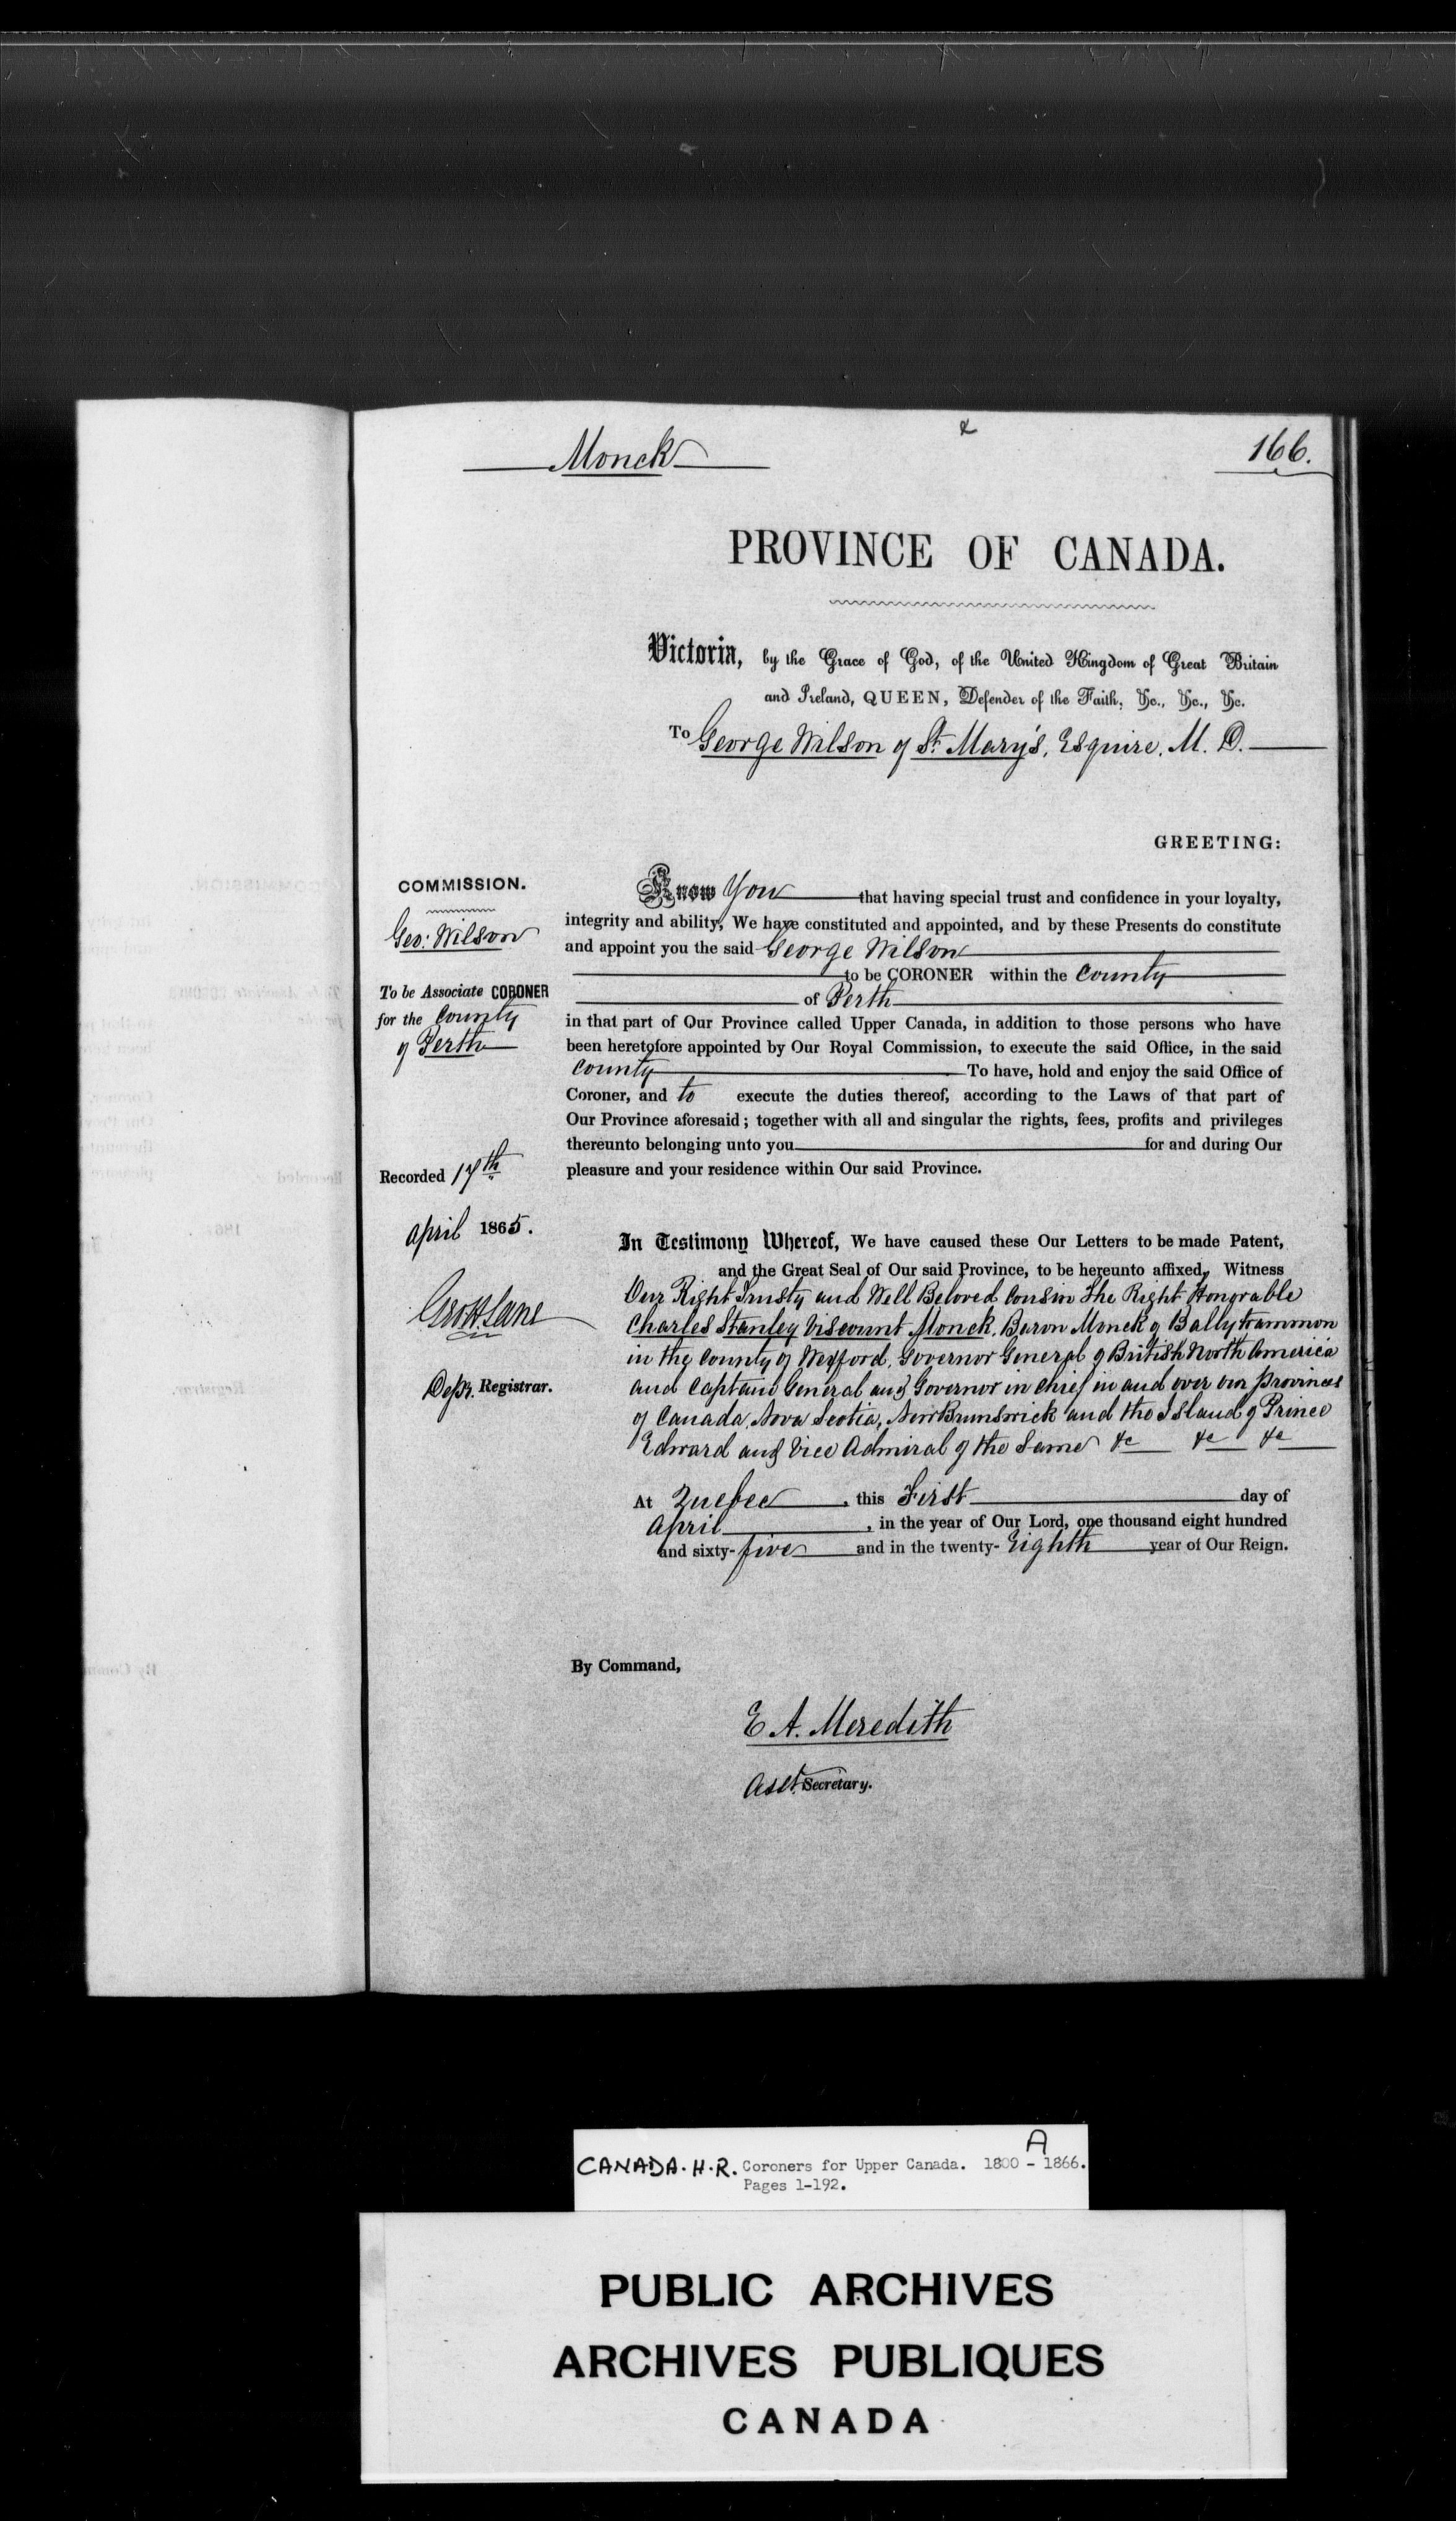 Monck
166.
PROVINCE OF CANADA.
Victoria, by the Grace of God, of the United Kingdom of Great Britain
and Ireland, QUEEN, Defender of the Faith, &c., &c., &c.
To George Wilson of St. Mary's, Esquire, M. D.
GREETING:
COMMISSION.
Geo: Wilson
To be Associate CORONER
for the County
of Perth
Recorded 17th
April 1865.
Geo H. Lane
Depy. Registrar.
Know You that having special trust and confidence in your loyalty,
integrity and ability, We have constituted and appointed, and by these Presents do constitute
and appoint you the said George Wilson
to be CORONER within the County
of Perth
in that part of Our Province called Upper Canada, in addition to those persons who have
been heretofore appointed by Our Royal Commission, to execute the said Office, in the said
County To have, hold and enjoy the said Office of
Coroner, and to execute the duties thereof, according to the Laws of that part of
Our Province aforesaid; together with all and singular the rights, fees, profits and privileges
thereunto belonging unto you for and during Our
pleasure and your residence within Our said Province.
In Testimony Whereof, We have caused these Our Letters to be made Patent,
and the Great Seal of Our said Province, to be hereunto affixed, Witness
Our Right Trusty and Well Beloved Cousin The Right Honorable
Charles Stanley Viscount Monck, Baron Monck of Ballytrammon
in the County of Wexford, Governor General of British North America
and Captain General and Governor in Chief in and over our Provinces
of Canada, Nova Scotia, New Brunswick and the Island of Prince
Edward and Vice Admiral of the Same &c &c &c
At Quebec, this First day of
April, in the year of Our Lord, one thousand eight hundred
and sixty-five and in the twenty-Eighth year of Our Reign.
By Command,
E A. Meredith
Asst. Secretary.
CANADA. H. R. Coroners for Upper Canada. 1800 - 1866.
A
Pages 1-192.
PUBLIC ARCHIVES
ARCHIVES PUBLIQUES
CANADA